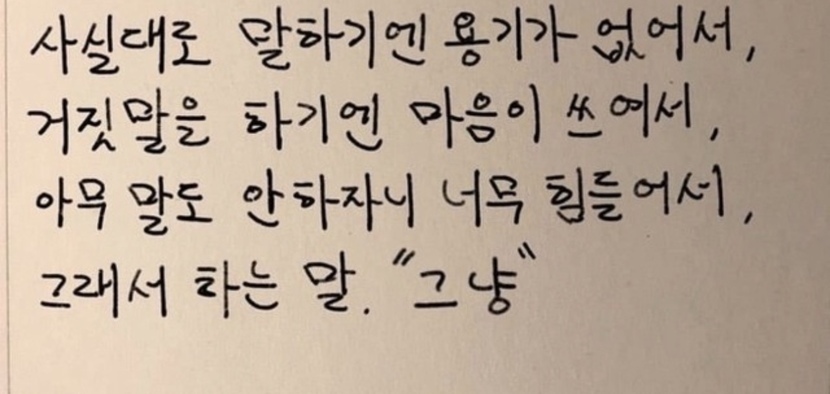 사실대로 말하기엔 용기가 없어서,
거짓말을 하기엔 마음이 쓰여서,
아무 말도 안하자니 너무 힘들어서,
그래서 하는 말. "그냥"